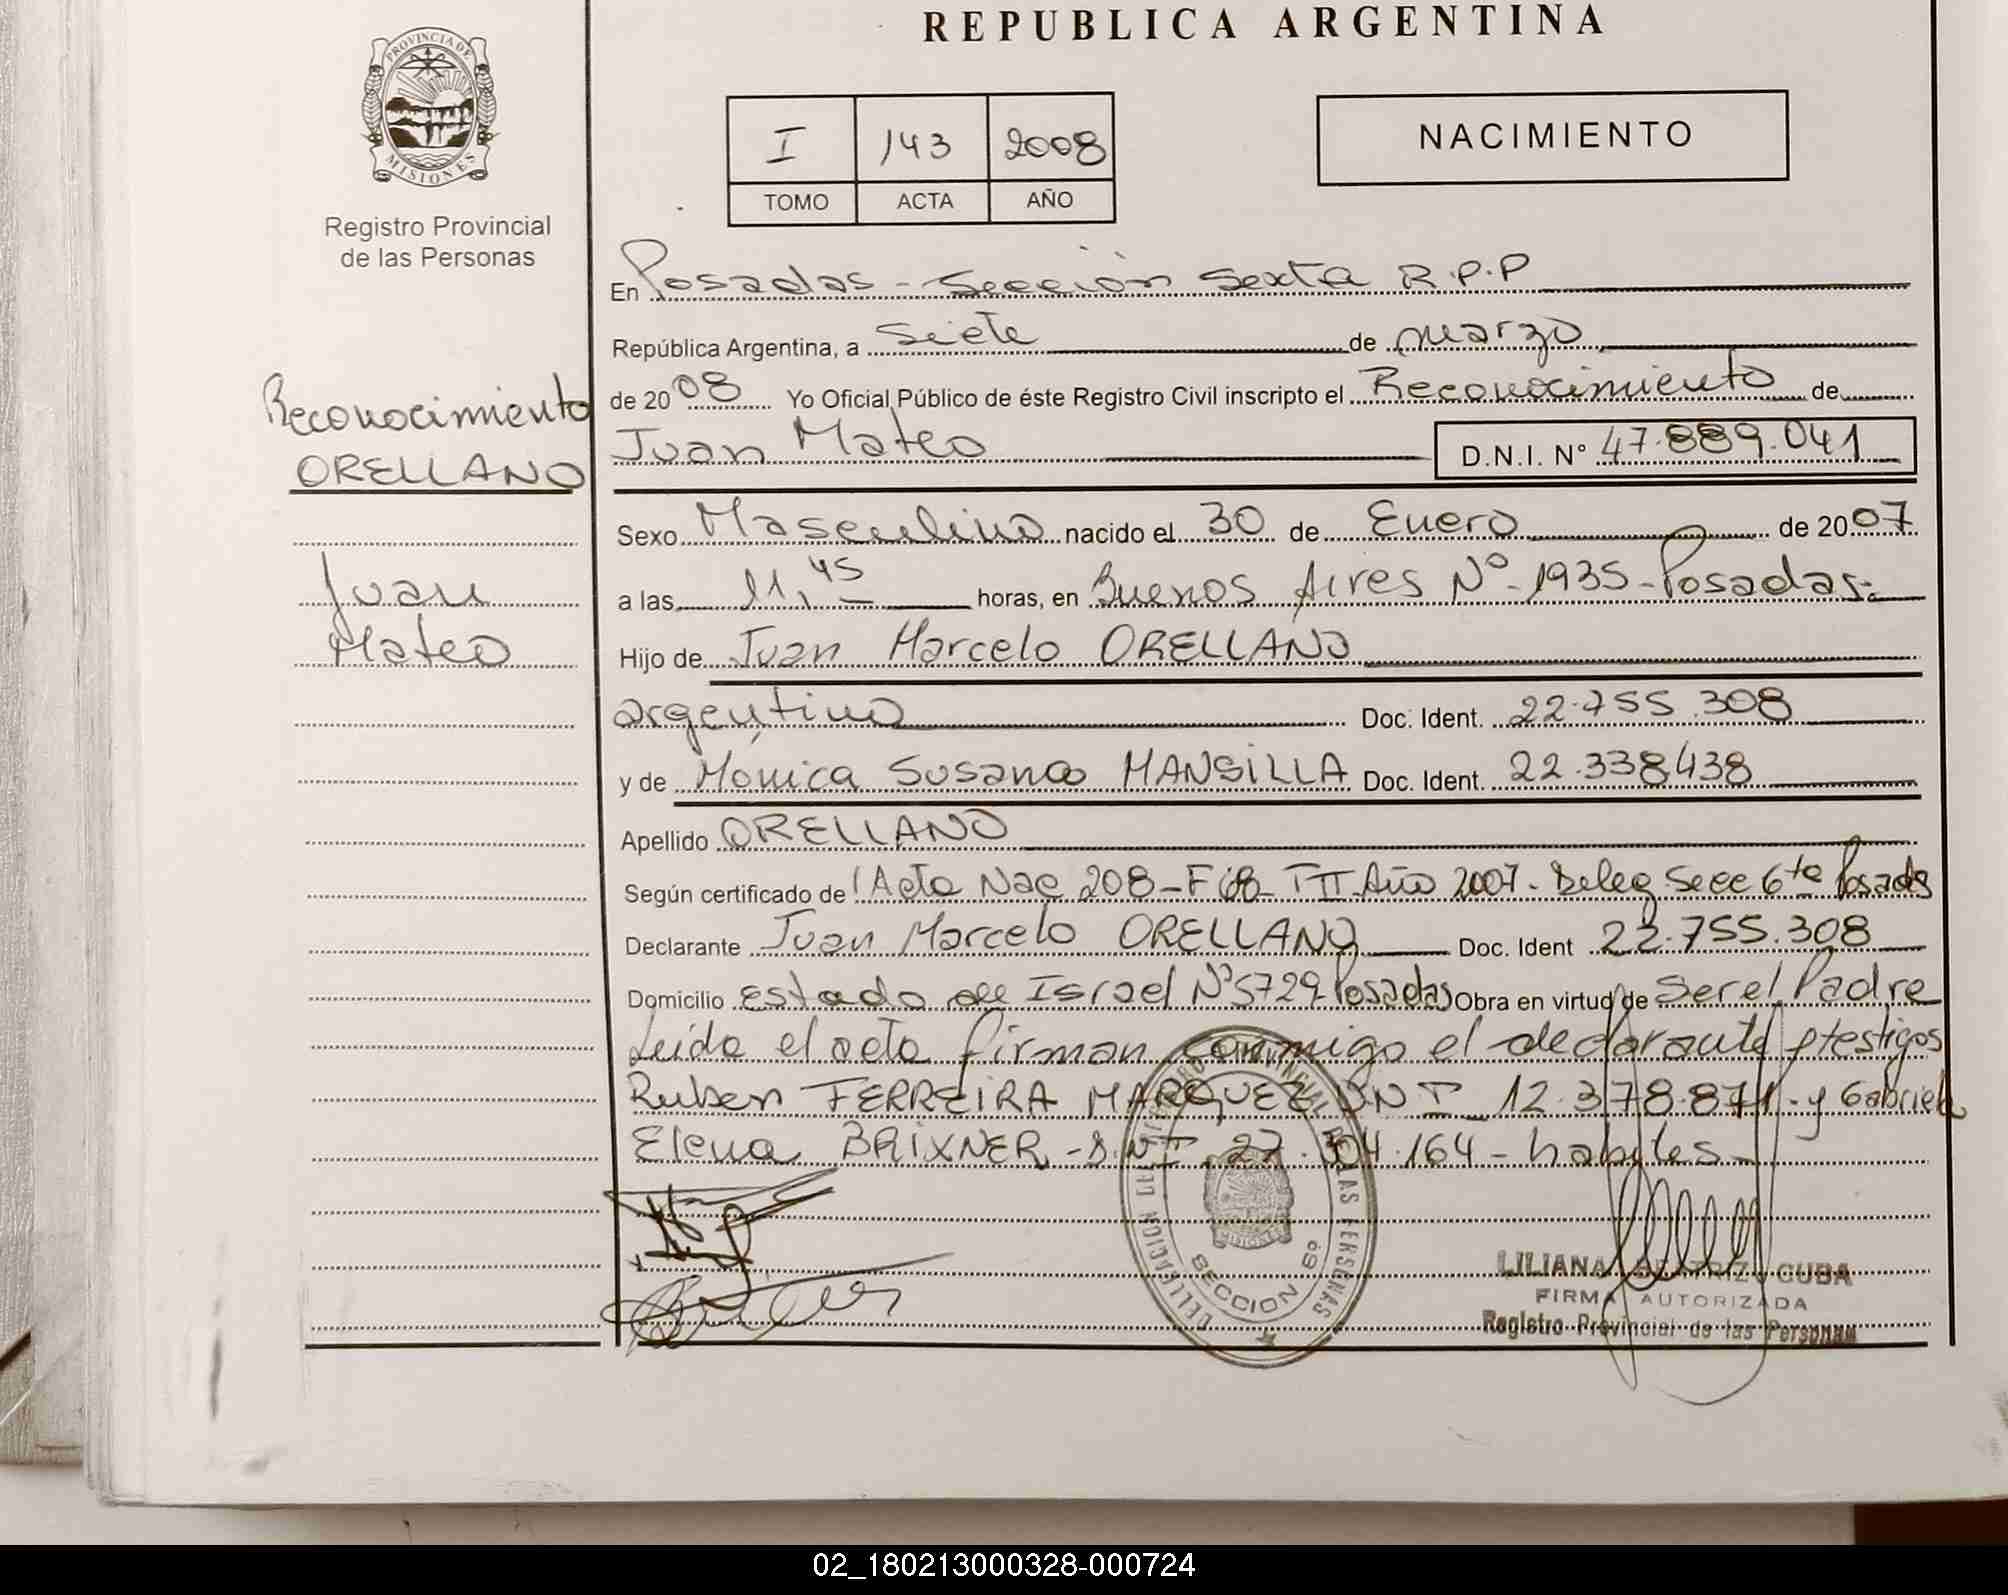 REPUBLICA ARGENTINA
PROVINCIA DE
MISIONES
Registro Provincial
de las Personas
I 143 2008
TOMO ACTA AÑO
NACIMIENTO
Reconocimiento
ORELLANO
Juan
Mateo
En Posadas - Sección Sexta R.P.P
República Argentina, a Siete de marzo
de 2008 Yo Oficial Público de éste Registro Civil inscripto el Reconocimiento de
Juan Mateo D.N.I. N° 47.889.041
Sexo Masculino nacido el 30 de Enero de 2007
a las 11,45 horas, en Buenos Aires Nº-1935-Posadas-
Hijo de Juan Marcelo ORELLANO
argentino Doc. Ident. 22.755.308
y de Mónica Susana MANSILLA Doc. Ident. 22.338438
Apellido ORELLANO
Según certificado de Acta Nac 208-F68-TII-Año 2007-Deleg Secc 6ta Posadas
Declarante Juan Marcelo ORELLANO Doc. Ident 22.755.308
Domicilio Estado de Israel Nº5729-Posadas Obra en virtud de Ser el Padre
Leída el acta firman conmigo el declarante y testigos
Ruben FERREIRA MARQUEZ D.N.I 12.378.871-y Gabriela
Elena BRIXNER-D.N.I 27.304.164-habiles-
DELEGACION DEL REGISTRO PROVINCIAL DE LAS PERSONAS
SECCION 6º
LILIANA BEATRIZ CUBA
FIRMA AUTORIZADA
Registro Provincial de las Personas
02_180213000328-000724